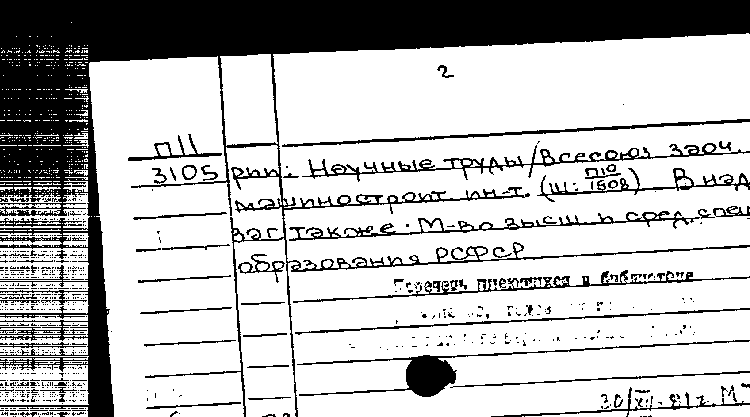 2
П11
3105 рип: Научные труды/Всесоюз заоч.
машиностроит. ин-т. (Ш: П10/1508) В над
заг также: М-во высш. и сред. спец
образования РСФСР
Перечень имеющихся в библиотеке
30/XII-81г. М.